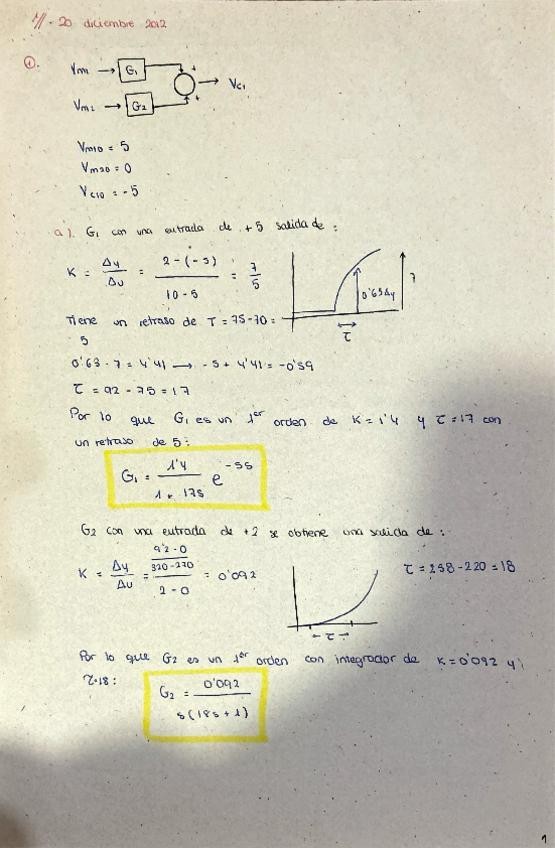 11 - 20 diciembre 2012
1.
Vm1 → G1 + → Vc1
Vm2 → G2 +
Vm10 = 5
Vm20 = 0
Vc10 = -5
a). G1 con una entrada de +5 salida de :
K = Δy/Δu = 2-(-5)/10-5 = 7/5
0'63Δy 7
τ
Tiene un retraso de T = 75-70 =
5
0'63 · 7 = 4'41 → -5 + 4'41 = -0'59
τ = 92 - 75 = 17
Por lo que G1 es un 1er orden de K = 1'4 y τ = 17 con
un retraso de 5 :
G1 = 1'4/1 + 17s e^-5s
G2 con una entrada de +2 se obtiene una salida de :
K = Δy/Δu = (9'2-0/320-220)/2-0 = 0'092
τ = 238 - 220 = 18
- τ -
Por lo que G2 es un 1er orden con integrador de K = 0'092 y
τ=18 :
G2 = 0'092/s(18s+1)
1